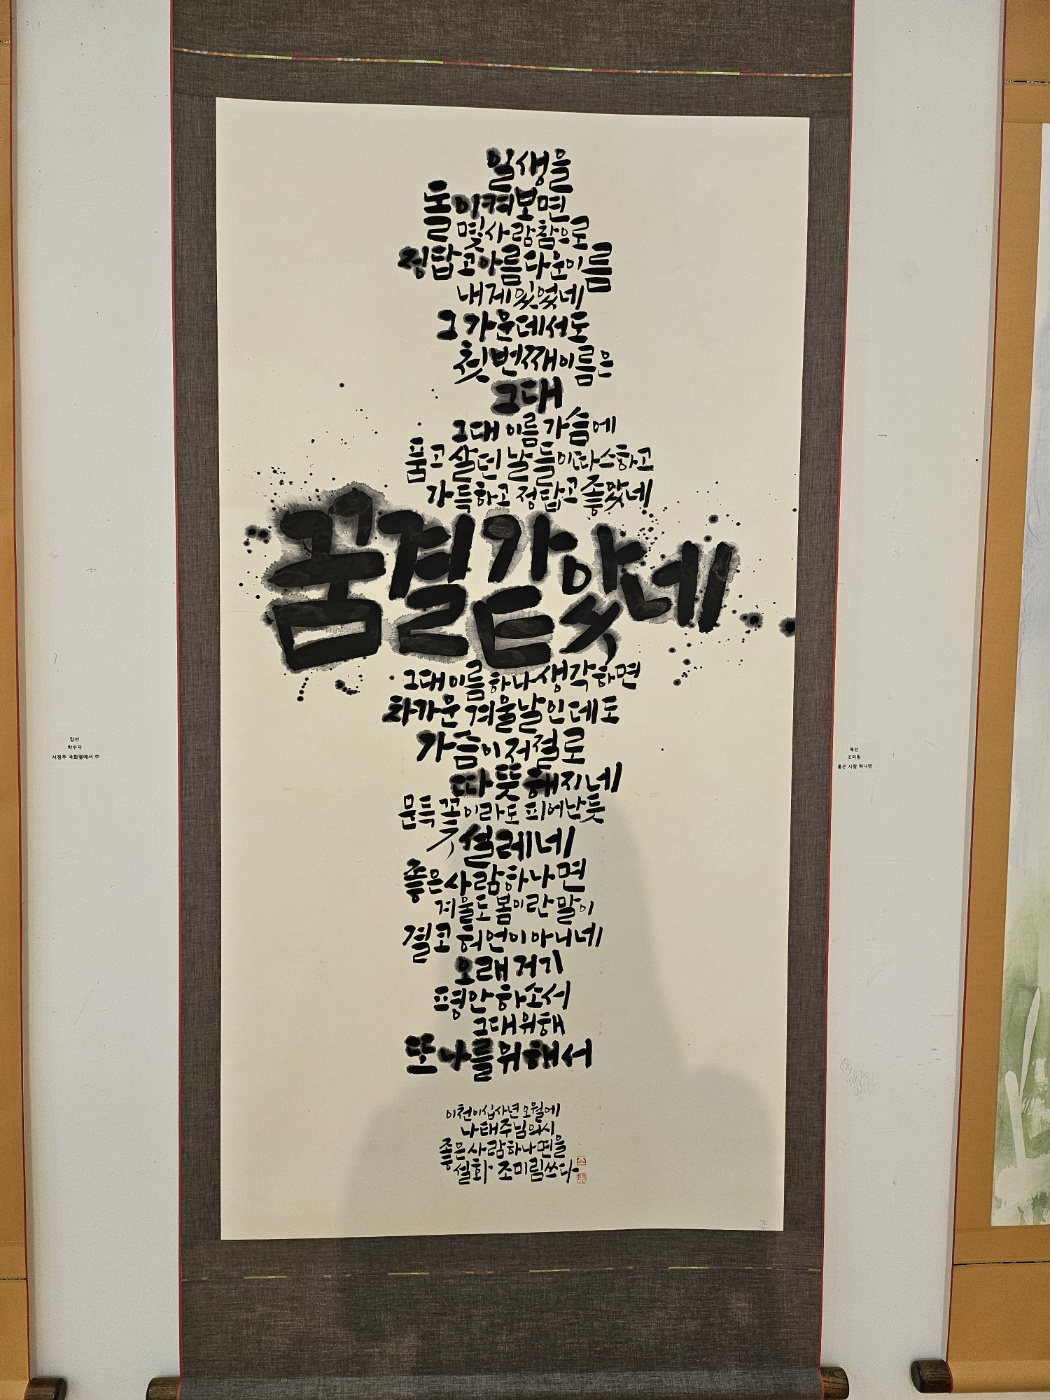 일생을
돌이켜보면
몇사람참으로
정답고아름다운이름
내게있었네
그가운데서도
첫번째이름은
그대
그대 이름 가슴에
품고 살던 날들이따스하고
가득하고 정답고 좋았네
꿈결같았네
그대이름하나생각하면
차가운겨울날인데도
가슴이저절로
따뜻해지네
문득 꽃이라도 피어난듯
설레네
좋은사람하나면
겨울도봄이란말이
결코허언이아니네
오래거기
평안하소서
그대위해
또나를위해서
이천이십사년 오월에
나태주님의시
좋은사람하나면을
설화 조미림쓰다
입선
서정주 국화옆에서 中
특선
조미림
좋은 사람 하나면